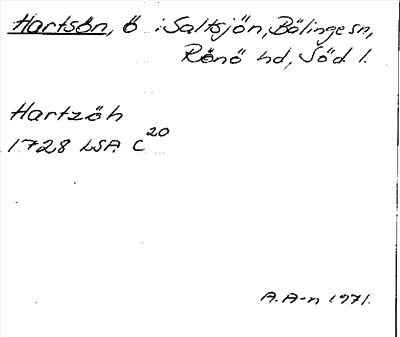 Hartsön, ö i Saltsjön, Bälinge sn,
Rönö hd, Söd. l.
Hartzöh
1728 LSA C 20
A. A-n 1971.